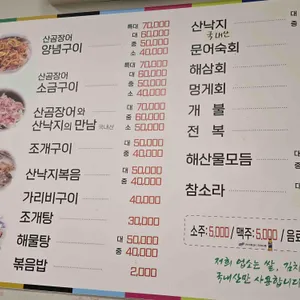 산곰장어
양념구이
특대 70,000
대 60,000
중 50,000
소 40,000
산곰장어
소금구이
특대 70,000
대 60,000
중 50,000
소 40,000
산곰장어와
산낙지의 만남
대 70,000
중 60,000
소 50,000
조개구이
대 50,000
중 40,000
산낙지볶음
대 50,000
중 40,000
가리비구이
40,000
조개탕
30,000
해물탕
대 50,000
중 40,000
볶음밥
2,000
산낙지
국내산
문어숙회
대
중
해삼회
멍게회
개 불
전 복
해산물모듬
대
중
참소라
대
중
소주: 5,000 / 맥주: 5,000 / 음료
저희 업소는 쌀, 김치
국내산만 사용합니다